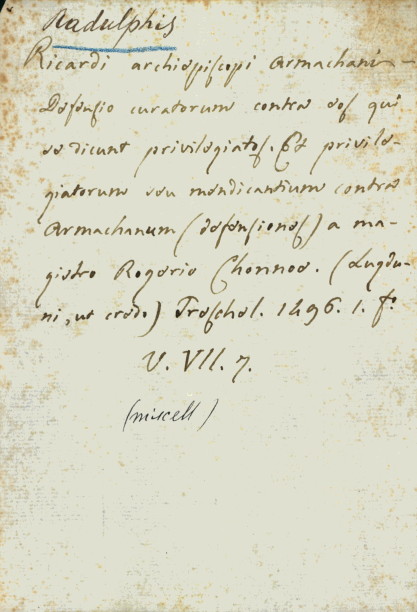 Radulphis
Ricardi archiepiscopi Armachani
Defensio curatorum contra eos qui
se dicunt privilegiatos. Et privile-
giatorum seu mendicantium contra
Armachanum (defensiones) a ma-
gistro Rogerio Chonnoe. (Lugdu-
ni, ut credo) Treschel. 1496. 1. f.º
V. VII. 7.
(miscell)